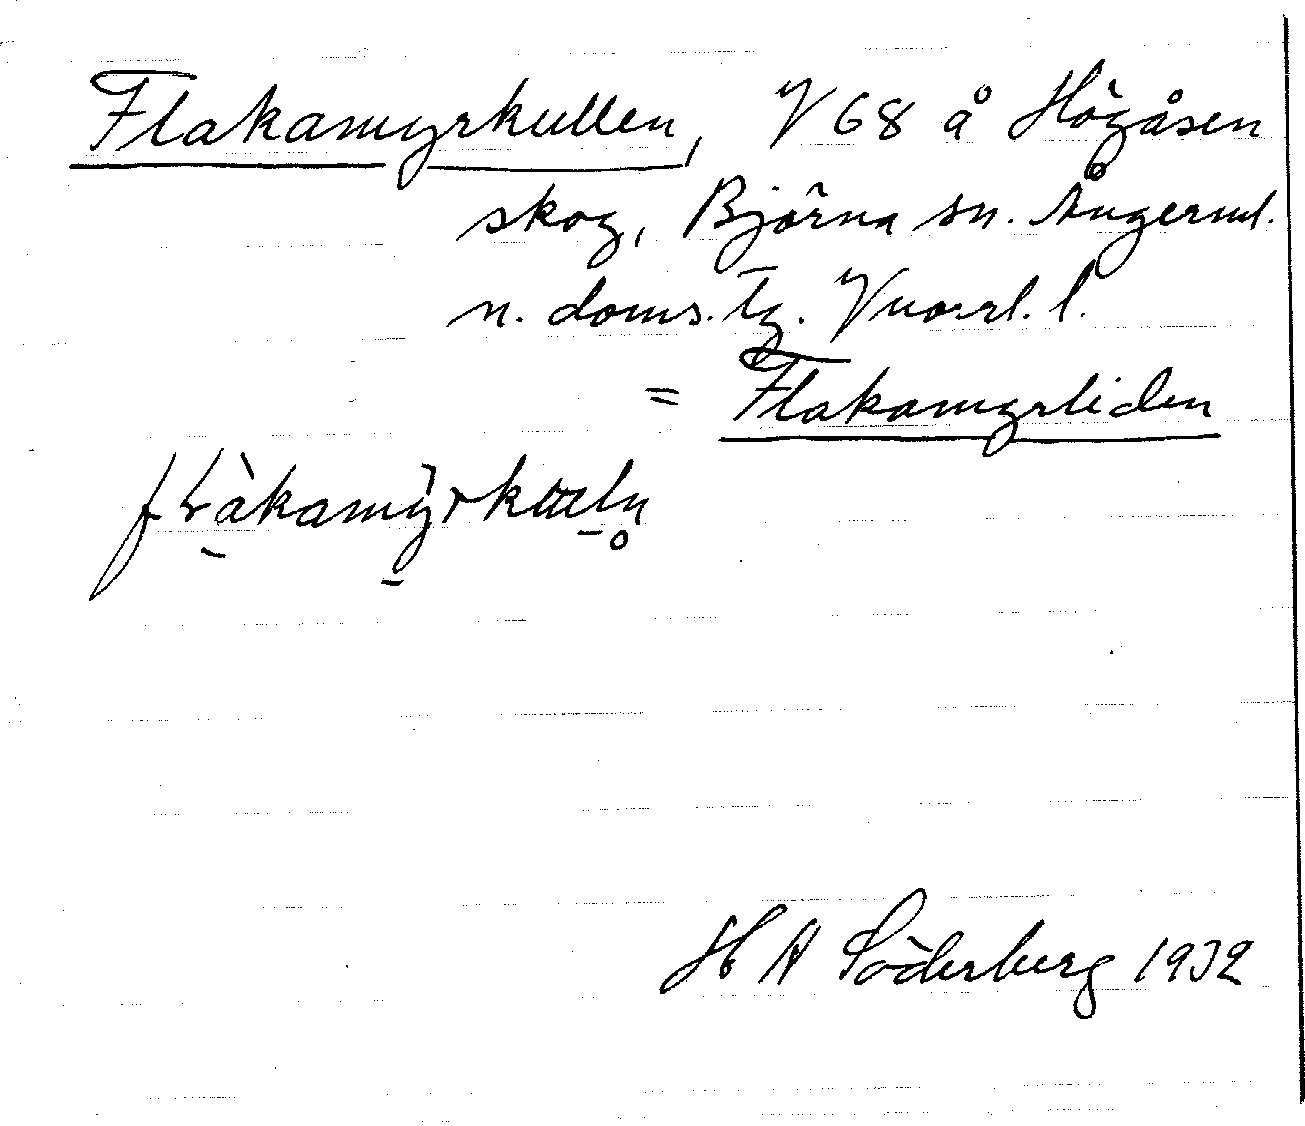 Flakamyrkullen, V 68 å Högåsen
skog, Björna sn. Ångerml.
n. doms. tg. Vnorrl. l.
= Flakamyrliden
H A Söderberg 1932